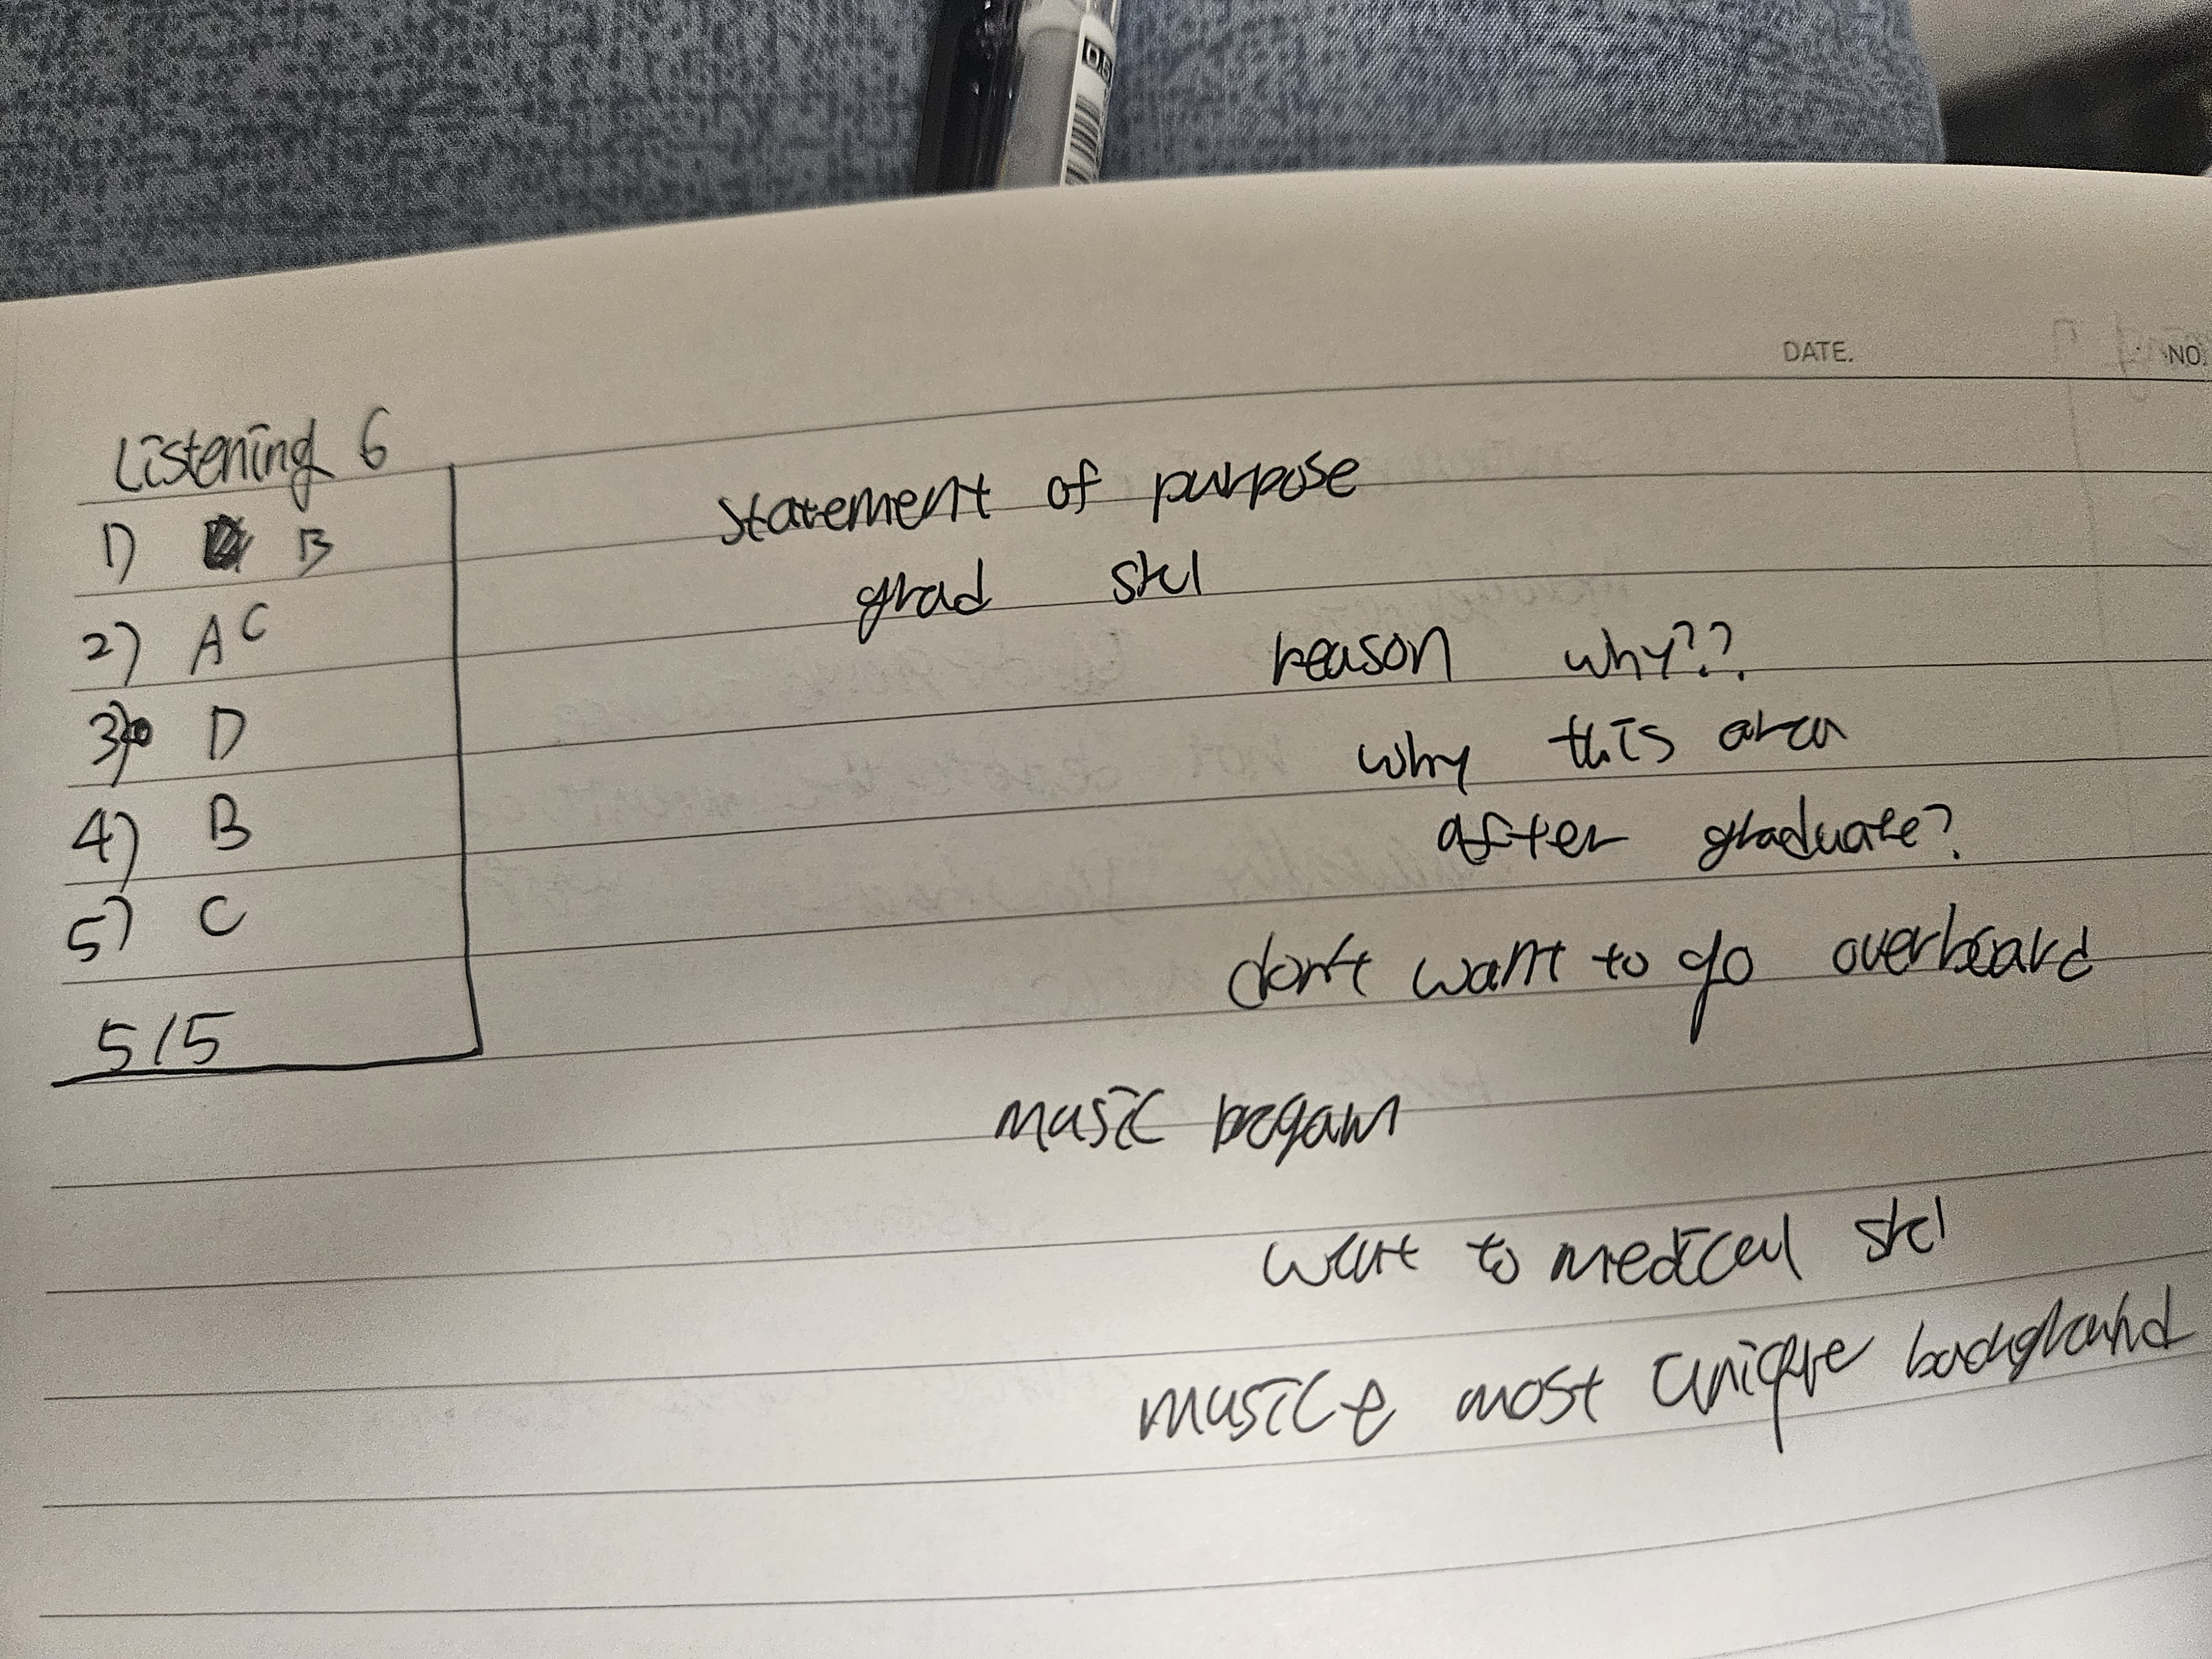 0.5
DATE.
NO.
Listening 6
1) B
2) A C
3) D
4) B
5) C
5/5
statement of purpose
grad skl
reason why??
why this area
after graduate?
don't want to go overboard
music
want to medical skl
music most unique background